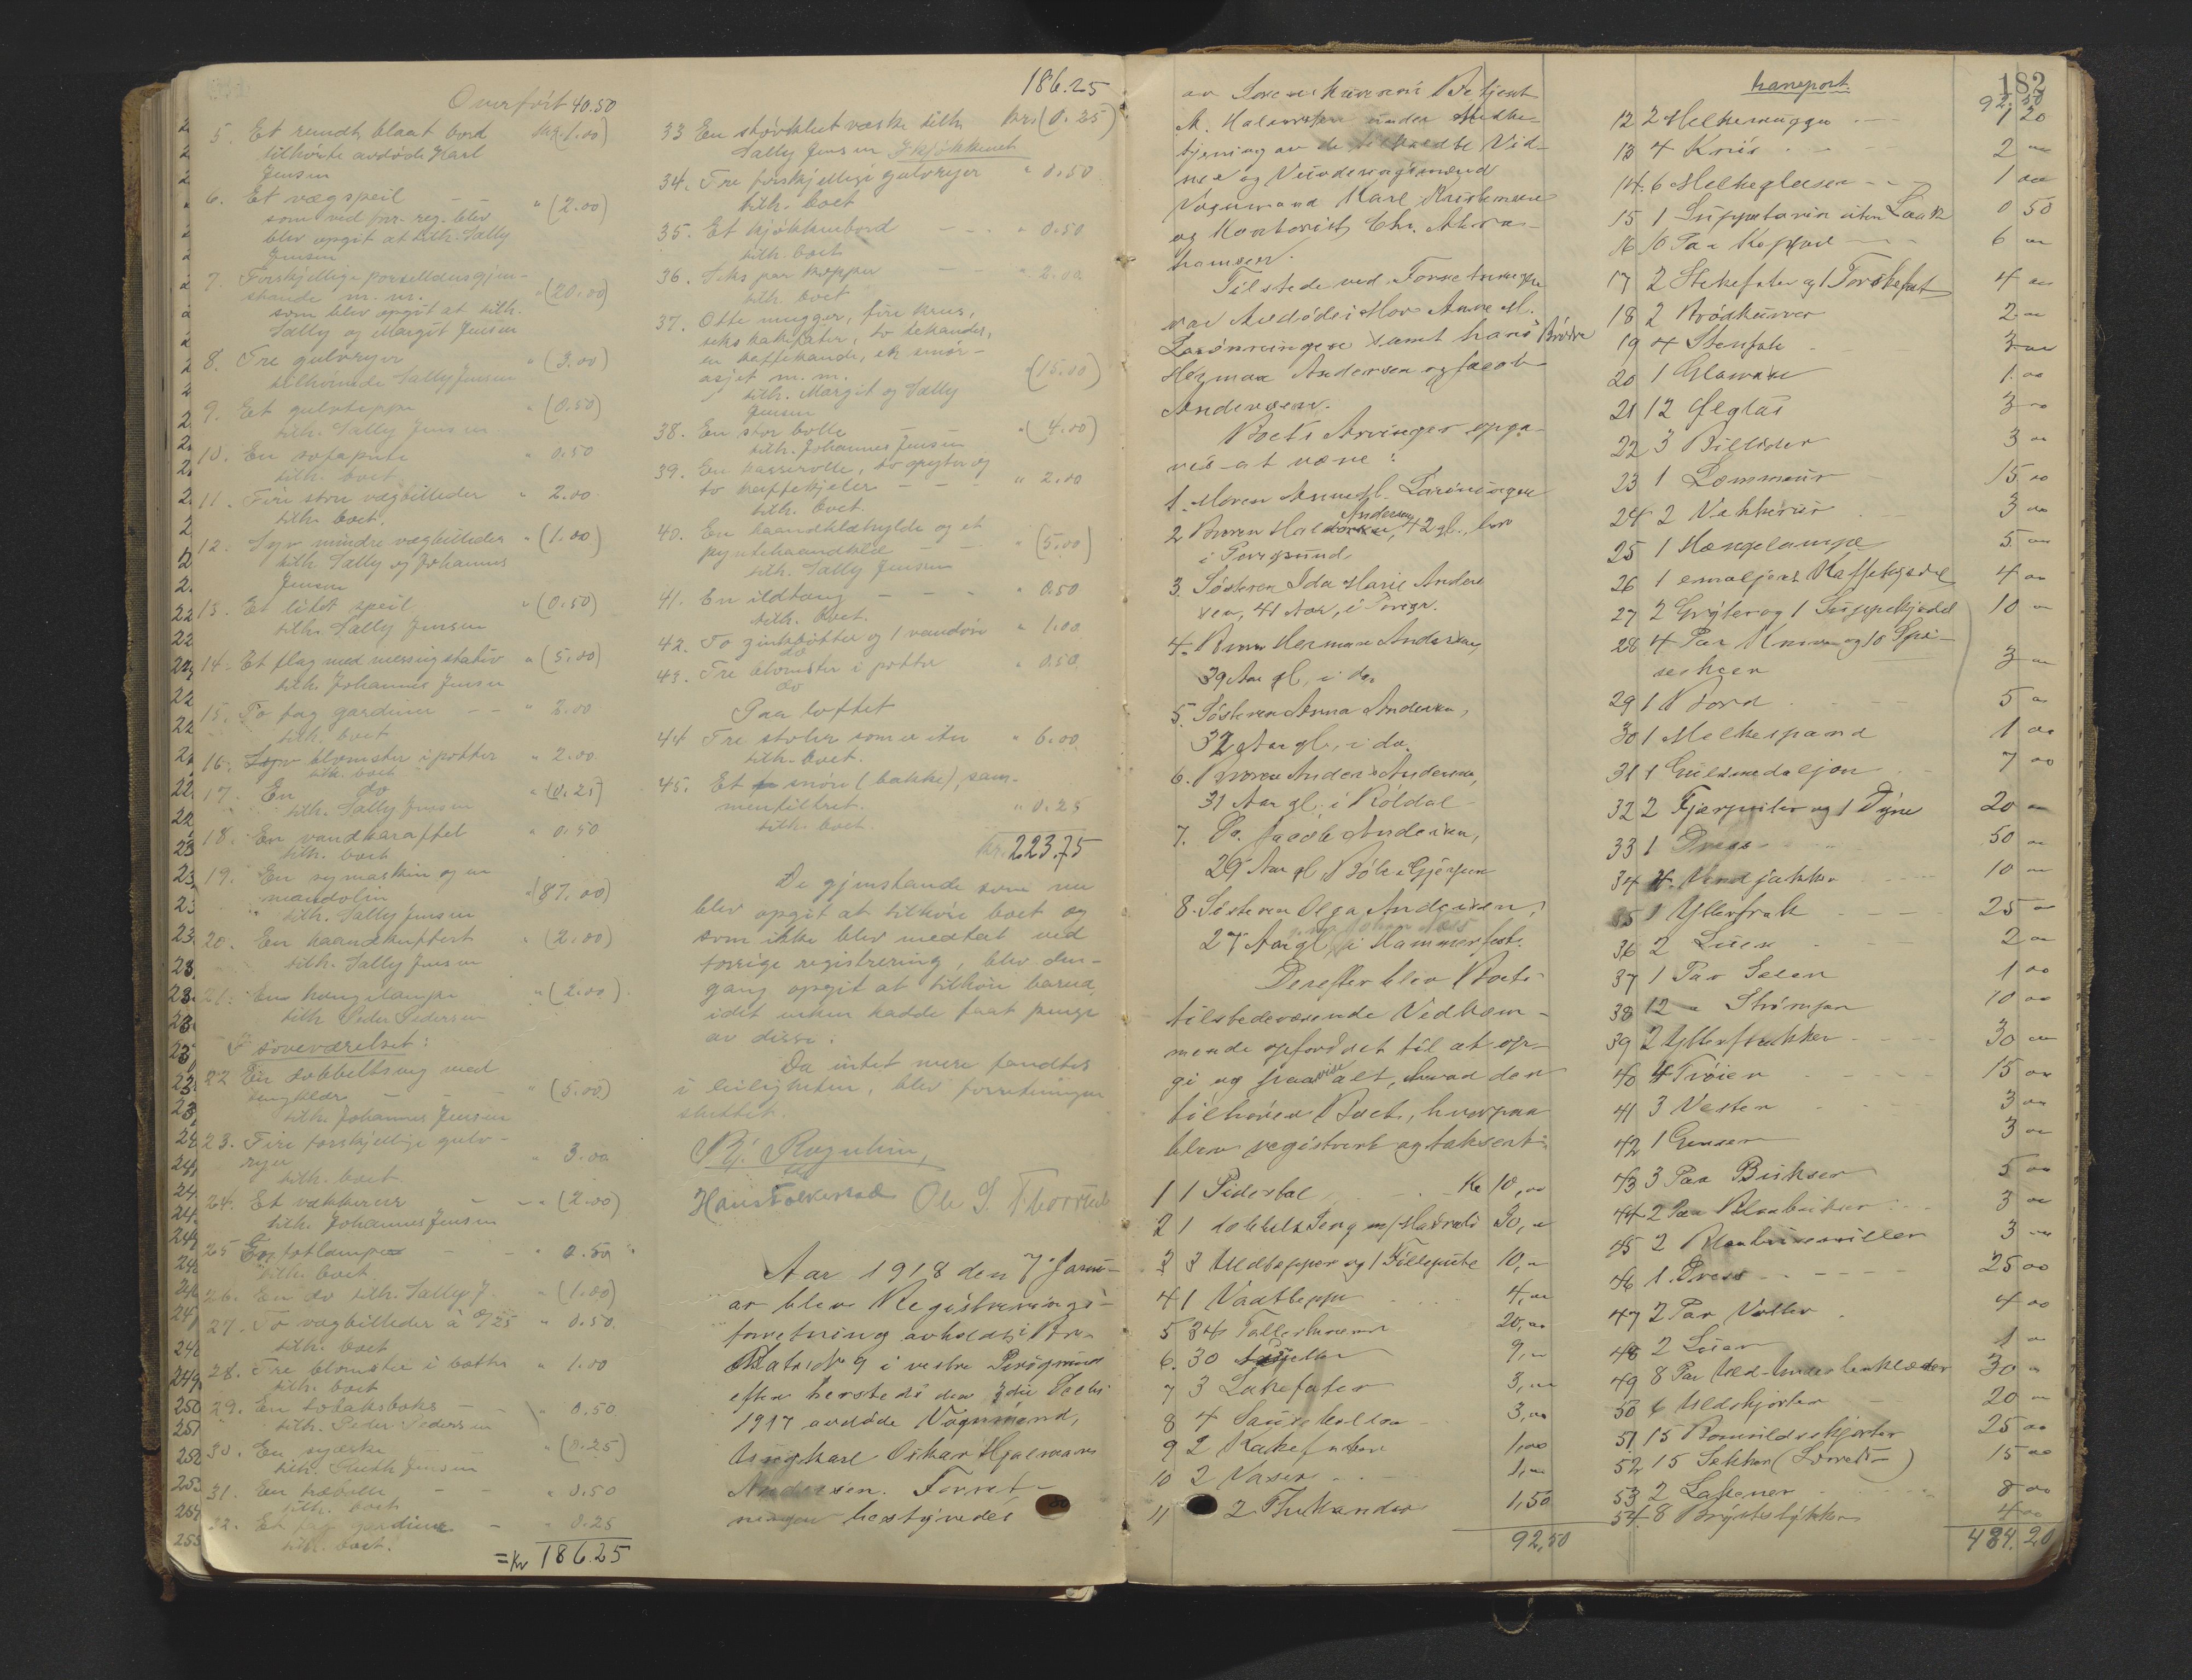 Overført 40.50
5. Et rundt blaat bord kr.(1.00)
tilhørte avdøde Karl
Jensen
6. Et vægspeil - - " (2.00)
som ved forr. reg. blev
blev opgit at tilh. Sally
Jensen
7. Forskjellige porsellænsgjen-
stande m. m. "(20.00)
som blev opgit at tilh.
Sally og Margit Jensen
8. Tre gulvryer " (3.00)
tilhørende Sally Jensen
9. Et gulvteppe " (0.50)
tilh. Sally Jensen
10. En sofapute " 0.50
tilh. boet
11. Fire store vægbilleder " 2.00
tilh. boet.
12. Syv mindre vægbilleder " (1.00)
tilh. Sally og Johannes
Jensen
13. Et litet speil " (0.50)
tilh. Sally Jensen
14. Et flag med messingstativ " (5.00)
tilh. Johannes Jensen
15. To fag gardiner - - " 2.00
tilh. boet
16. Syv blomster i potter " 2.00
tilh. boet
17. En do " (0.25)
tilh. Sally Jensen
18. En vandkaraffel " 0.50
tilh. boet
19. En symaskin og en
mandolin "(87.00)
tilh. Sally Jensen
20. En haandkuffert " (2.00)
tilh. Sally Jensen
21. En hængelampe " (2.00)
tilh. Peder Pedersen
I soveværelset:
22 En dobbeltseng med
sengklær - - " (5.00)
tilh. Johannes Jensen
23. Fire forskjellige gulv-
ryer " 3.00
tilh. boet
24. Et vækkerur - - " (2.00)
tilh. Johannes Jensen
25 En totlampe - - " 0.50
tilh. boet
26. En do tilh. Sally J. " (1.00)
27. To vægbilleder à 0/25 " 0.50
tilh. boet
28. Tre blomster i potter " 1.00
tilh. boet
29. En tobaksboks - " 0.50
tilh. Peder Pedersen
30. En syæske " (0.25)
tilh. Ruth Jensen
31. En træbolle - - " 0.50
tilh. boet
32. Et fag gardiner - " 0.25
tilh. boet.
= Kr 186.25
186.25
33 En støvklut væske tilh. kr. (0.25)
Sally Jensen I kjøkkenet
34. Tre forskjellige gulvryer " 0.50
tilh. boet
35. Et kjøkkenbord - - " 0.50
tilh. boet
36. Seks par kopper - - " 2.00
tilh. boet
37. Otte mugger, fire krus,
seks kakefater, to tekander,
en kaffekande, et smør-
asjet m. m. "(15.00)
tilh. Margit og Sally
Jensen
38. En stor bolle - "(4.00)
tilh. Johannes Jensen
39. En kasserolle, to gryter og
to kaffekjeler - - " 2.00
tilh. boet.
40. En haandklæhylde og et
pyntehaandklæ - - " (5.00)
tilh. Sally Jensen
41. En ildtang - - - " 0.50
tilh. boet.
42. To zinkbøtter og 1 vandøse " 1.00
do
43. Tre blomster i potter " 0.50
do
Paa loftet
44 Tre stoler som er itu " 6.00
tilh. boet.
45. Et snøre (bakke), sam-
menfiltret. " 0.25
tilh. boet.
kr. 223.75
De gjenstande som nu
blev opgit at tilhøre boet og
som ikke blev medtat ved
forrige registrering, blev den-
gang opgit at tilhøre barna,
idet enken hadde faat penge
av disse.
Da intet mere fandtes
i leiligheten, blev forretningen
sluttet.
Ole S. Thorsen
Aar 1918 den 7 Janu-
ar blev Registrerings-
forretning avholdt i Bra.
Matr. № 9 i vestre Porsgrund
efter hersteds den 3die Decbr
1917 avdøde Vognmand,
Ungkarl Oskar Hjalmar
Andersen. Forret-
ningen bestyredes
182
av Sorenskriveriets Betjent
M. Halvorsen under Medbe-
tjening av de tilkaldte Vid-
ner og Vurderingsmænd
Vognmand Karl Kristensen
og Kontorist Chr. Abra-
hamsen.
Tilstede ved Forretningen
var Avdødes Mor Anne M.
Larønningen samt hans Brødre
Herman Andersen og Jacob
Andersen.
Boets Arvinger opga-
ves at være:
1. Moren Anne M. Larønningen
2 Broren Halvor Andersen, 42 gl., bor
i Porsgrund.
3. Søsteren Ida Marie Ander-
sen, 41 Aar, i Porsgr.
4. Broren Herman Andersen,
39 Aar gl, i do.
5. Søsteren Anna Andersen,
32 Aar gl, i do.
6. Broren Anders Andersen,
31 Aar gl, i Röldal
7. Do. Jacob Andersen,
29 Aar gl, Böle i Gjerpen
8. Søsteren Olga Andersen,
27 Aar gl, i Hammerfest.
Derefter blev Boets
tilstedeværende Vedkom-
mende opfordret til at op-
gi og paavise alt, hvad der
tilhører Boet, hvorpaa
blev registrert og taksert:
1 1 Sidestol Kr 10,00
2 1 dobbelt Seng m/Madrats 30,00
3 3 Uldtepper og 1 Fillepute 10,00
4 1 Vatteppe 4,00
5 34 Tallerkener 20,00
6. 30 Asjetter 9,00
7 3 Kakefater 3,00
8 4 Sausekolder 3,00
9 2 Kakefater 1,00
10 2 Vaser 1,00
11 2 Thekander 1,50
92,50
transport. 92,50
12 2 Melkemugger 1 20
13 4 Krus 2 00
14 6 Melkeglasser 1 00
15 1 Suppeterrin uten Laak 0 50
16 10 Par Kopper 6 00
17 2 Stekefater og 1 Torskefat 4 00
18 2 Brødkurver 2 00
19 4 Stenfate 3 00
20 1 Glasvase 1.00
21 12 Ølglas 3 00
22 3 Billeder 3 00
23 1 Lommeur 15 00
24 2 Vækkerur 3 00
25 1 Hængelampe 5 00
26 1 emaljert Kaffekjedel 4 00
27 2 Gryter og 1 Suppekjedel 10 00
28 4 Par Kniver og 10 Spi-
seskeer 3 00
29 1 Bord 5 00
30 1 Melkespand 1 00
31 1 Guldmedaljon 7 00
32 2 Fjærputer og 1 Dyne 20 00
33 1 Dress 50 00
34 4 Vindjakker 10 00
35 1 Ytterfrak 25 00
36 2 Luer 2 00
37 1 Par Seler 1 00
38 12 " Strømper 10 00
39 2 Ytterfrakker 30 00
40 4 Trøier 15 00
41 3 Vester 3 00
42 1 Genser 3 00
43 3 Par Bukser 5 00
44 2 Par Blaabukser 3 00
45 2 3 00
46 1 Dress 25 00
47 2 Par Votter 4 00
48 2 Luer 1 00
49 8 Par Uld-Underbenklæder 30 00
50 6 Uldskjorter 20 00
51 15 Bomuldsskjorter 25 00
52 15 Sekker (Lerreds-) 15 00
53 2 Lakener 8 00
54 8 Brystestykker 4 00
484.20